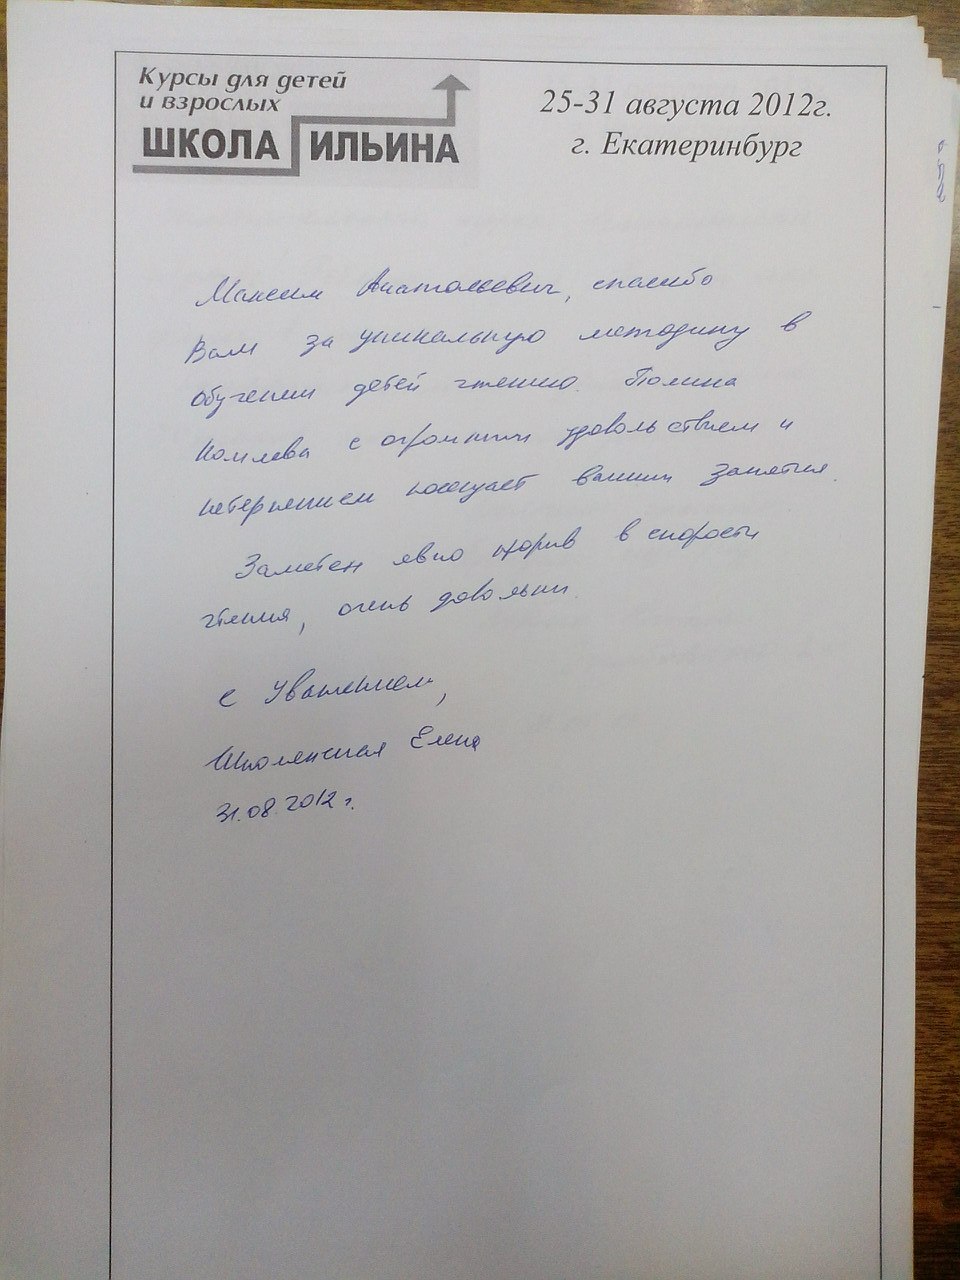 Курсы для детей
и взрослых
ШКОЛА ИЛЬИНА
25-31 августа 2012г.
г. Екатеринбург
Максим Анатольевич, спасибо
Вам за уникальную методику в
обучении детей чтению. Полина
с огромным удовольствием и
нетерпением посещает ваши занятия.
Заметен явно прорыв в скорости
чтения, очень довольны.
с Уважением,
Елена
31.08.2012 г.